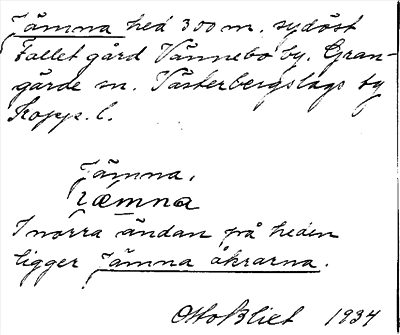 Jämna hed 300 m. sydöst
Fallet gård Vännebo by. Gran-
gärde sn. Västerbergslags by
Kopp. l.
Jämna.
Jämna åkrarna.
I norra ändan på heden
ligger Jämna åkrarna.
Otto Bliet 1934